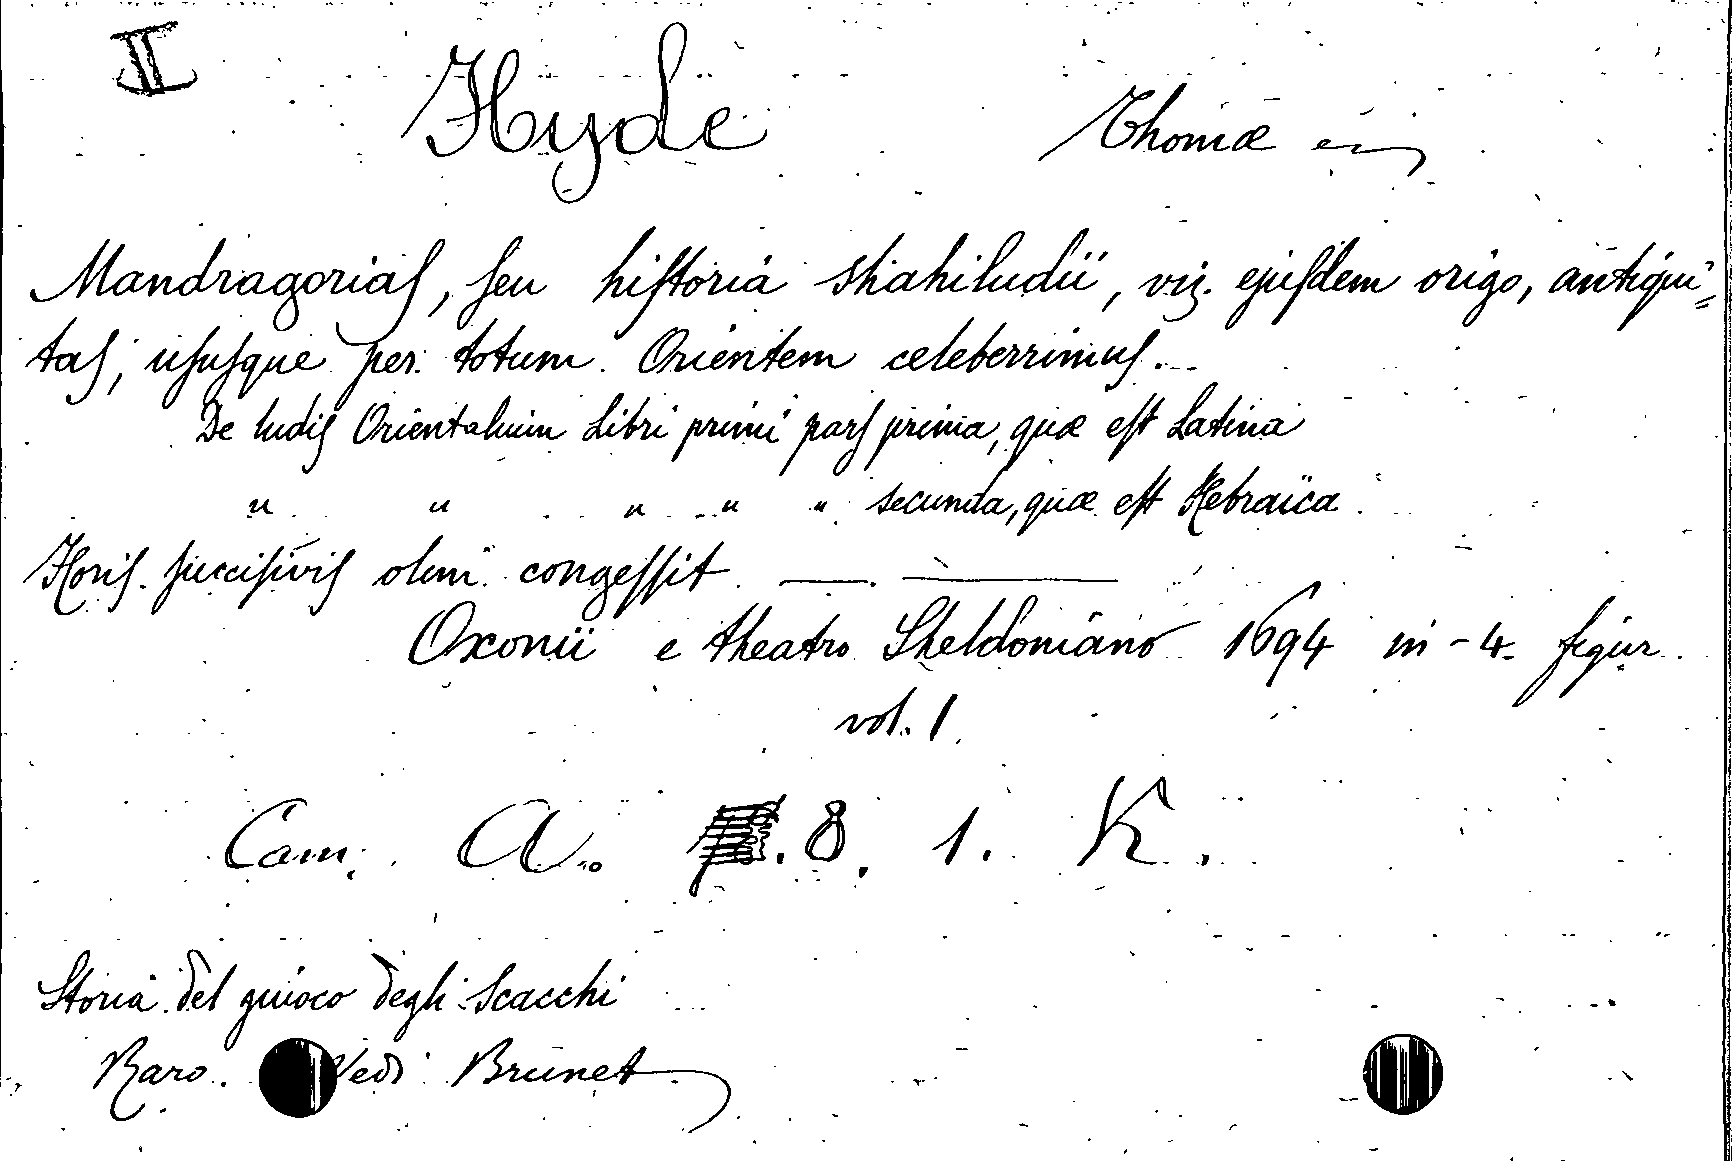 II
Hyde Thomæ
Mandragorias, seu historia shahiludii, viz. ejusdem origo, antiqui=
tas, ususque per totum Orientem celeberrimus.
De ludis Orientalium Libri primi pars prima, quæ est Latina
" " " " " secunda, quæ est Hebraica
Horis succisivis olim congessit — —
Oxonii e theatro Sheldoniano 1694 in-4. figur.
vol. 1
Cam. A. . 8. 1. K.
Storia del giuoco degli scacchi
Raro. Vedi Brunet